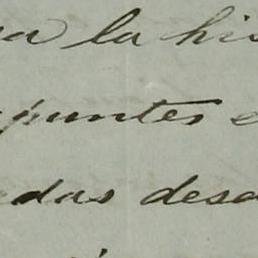 ra la his
apuntes e
das desd